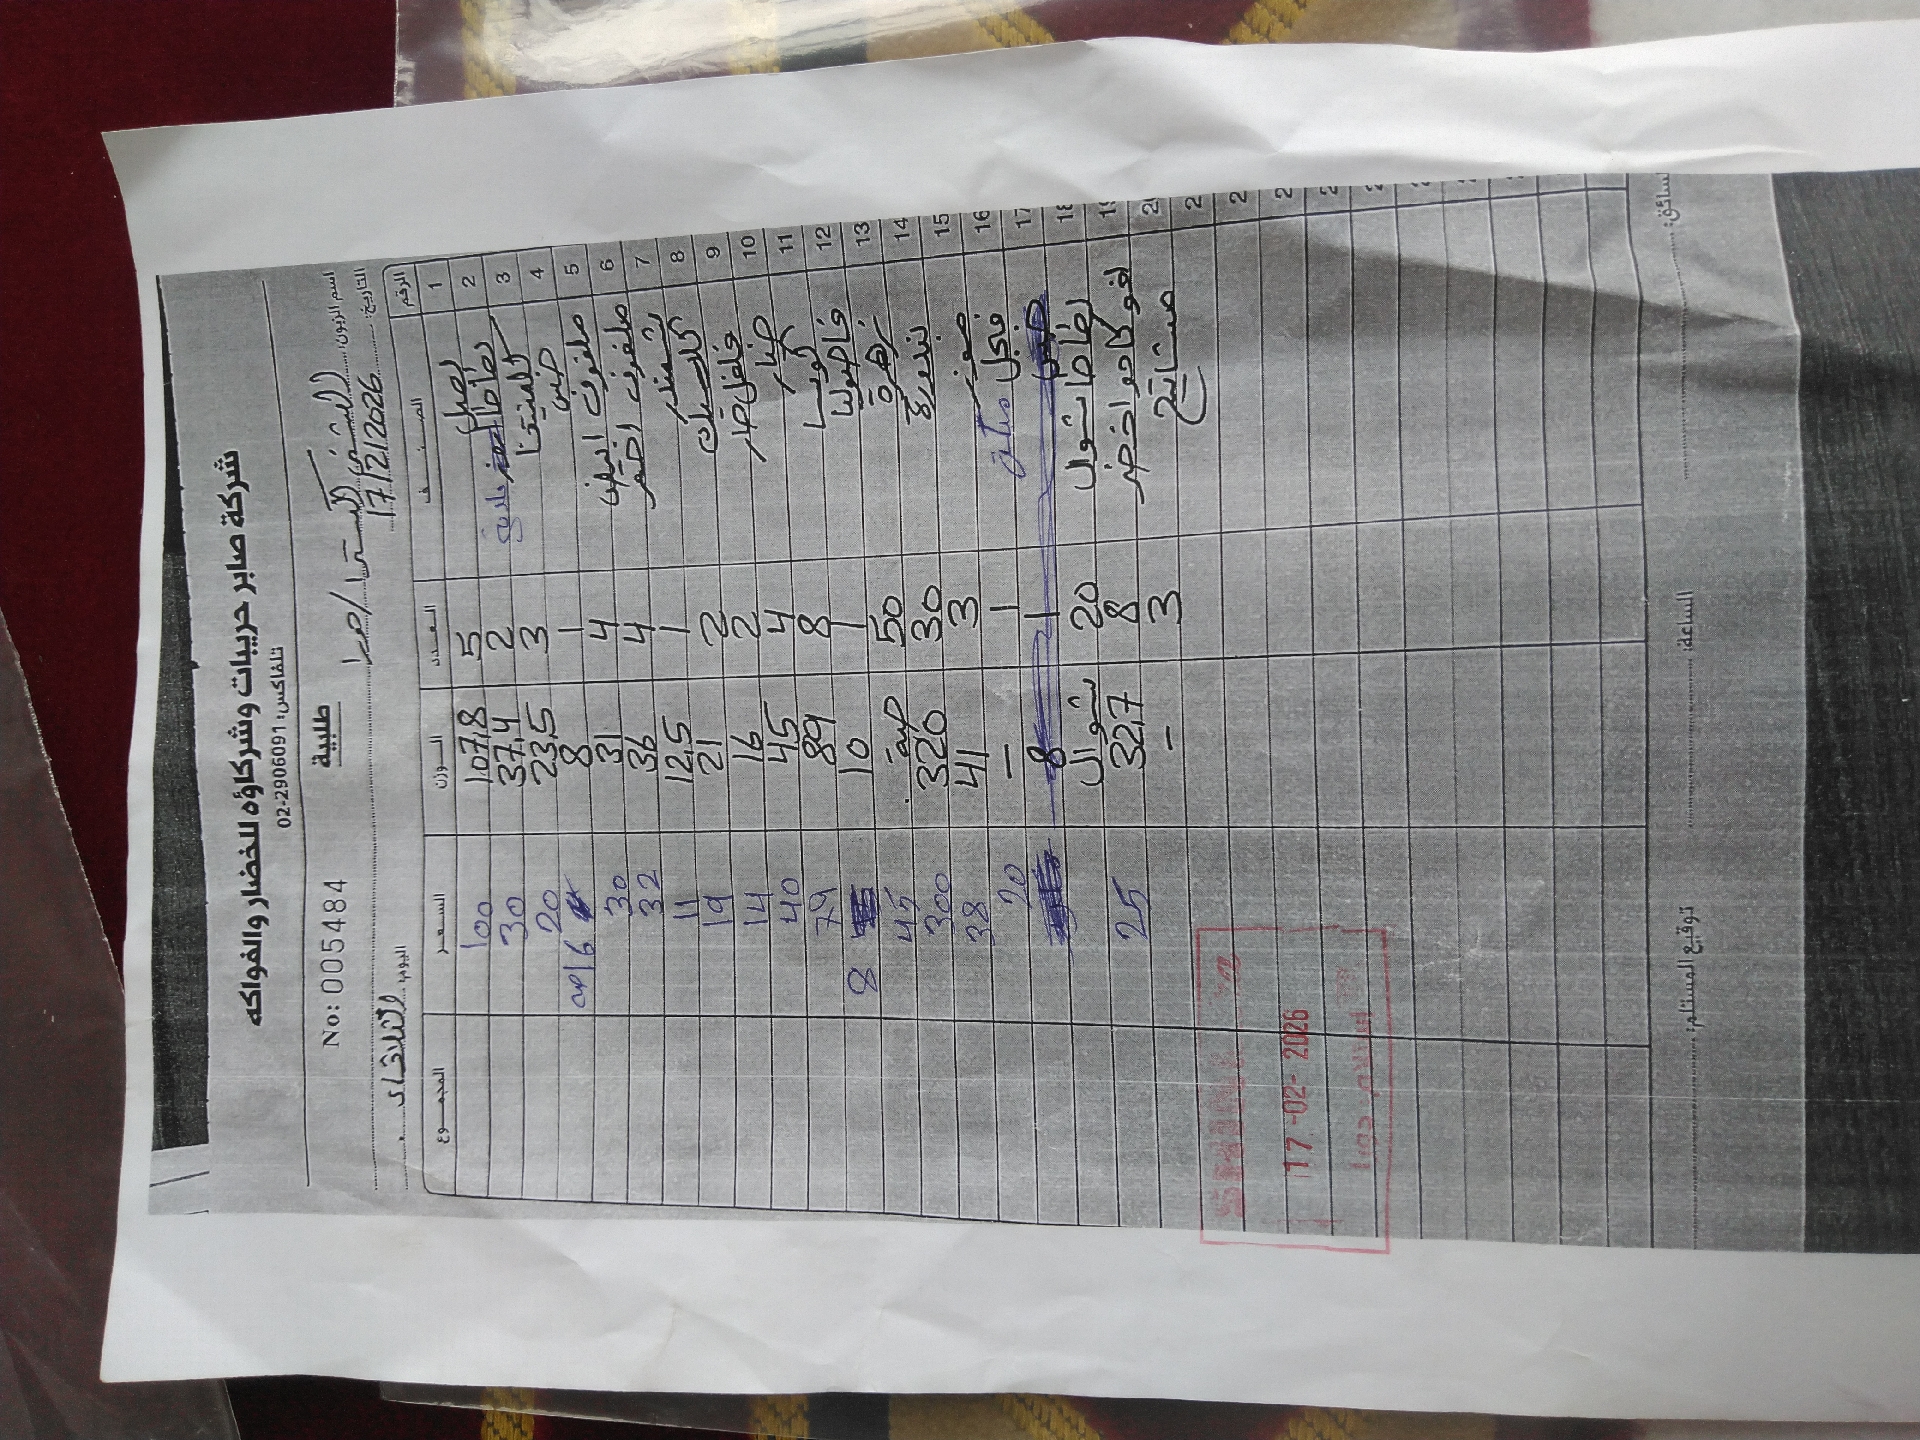 شركة صابر حريبات وشركاؤه للخضار والفواكه
تلفاكس: 02-2906091
طلبية
No: 005484
اسم الزبون:
التاريخ: 17/2/2026
اليوم: الثلاثاء
الرقم الصنف العدد الوزن السعر المجموع
1 بصل 5 107,8 100
2 بطاطا 2 37,4 30
3 3 23,5 20
4 خس 1 8 6
5 ملفوف ابيض 4 31 30
6 ملفوف احمر 4 36 32
7 شمندر 1 12,5 11
8 2 21 19
9 فلفل حار 2 16 14
10 خيار 4 45 40
11 كوسا 8 89 79
12 فاصوليا 1 10 8
13 زهرة 50 حبة 45
14 بندورة 30 320 300
15 جزر 3 41 38
16 فجل 1 - 20
17 1 8
18 بطاطا شوال 20 شوال
19 افوكادو اخضر 8 32,7 25
20 3 -
2
2
2
2
2
2
2
2
2
2
السائق:
الساعة:
توقيع المستلم:
17-02-2026